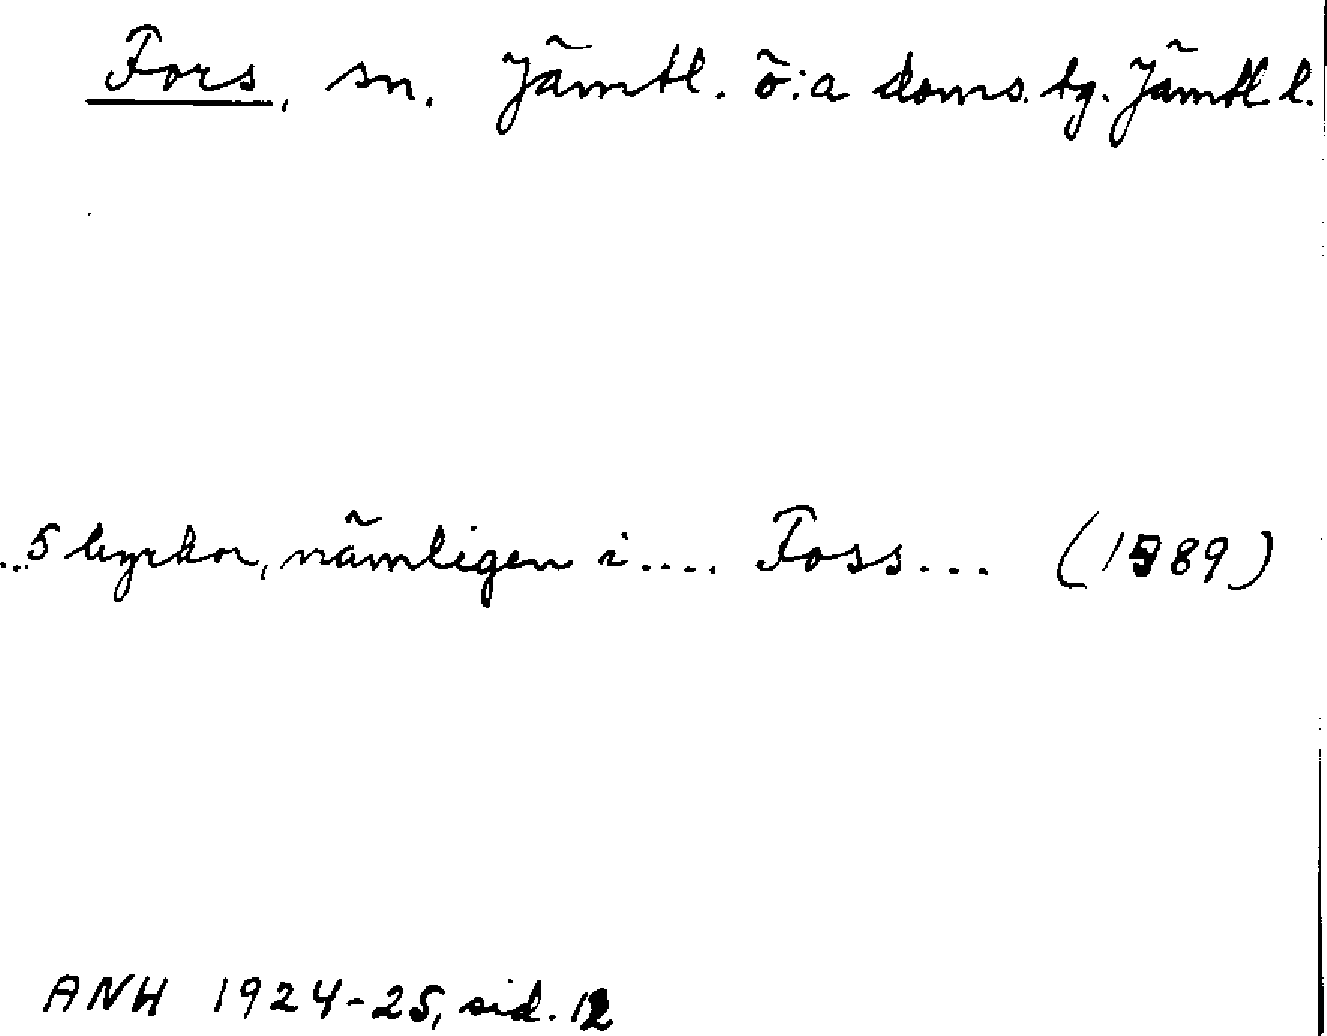 Fors, sn. Jämtl. ö:a doms. tg. Jämtl l.
...5 kyrkor, nämligen i.... Foss... (1589)
ANH 1924-25, sid. 12